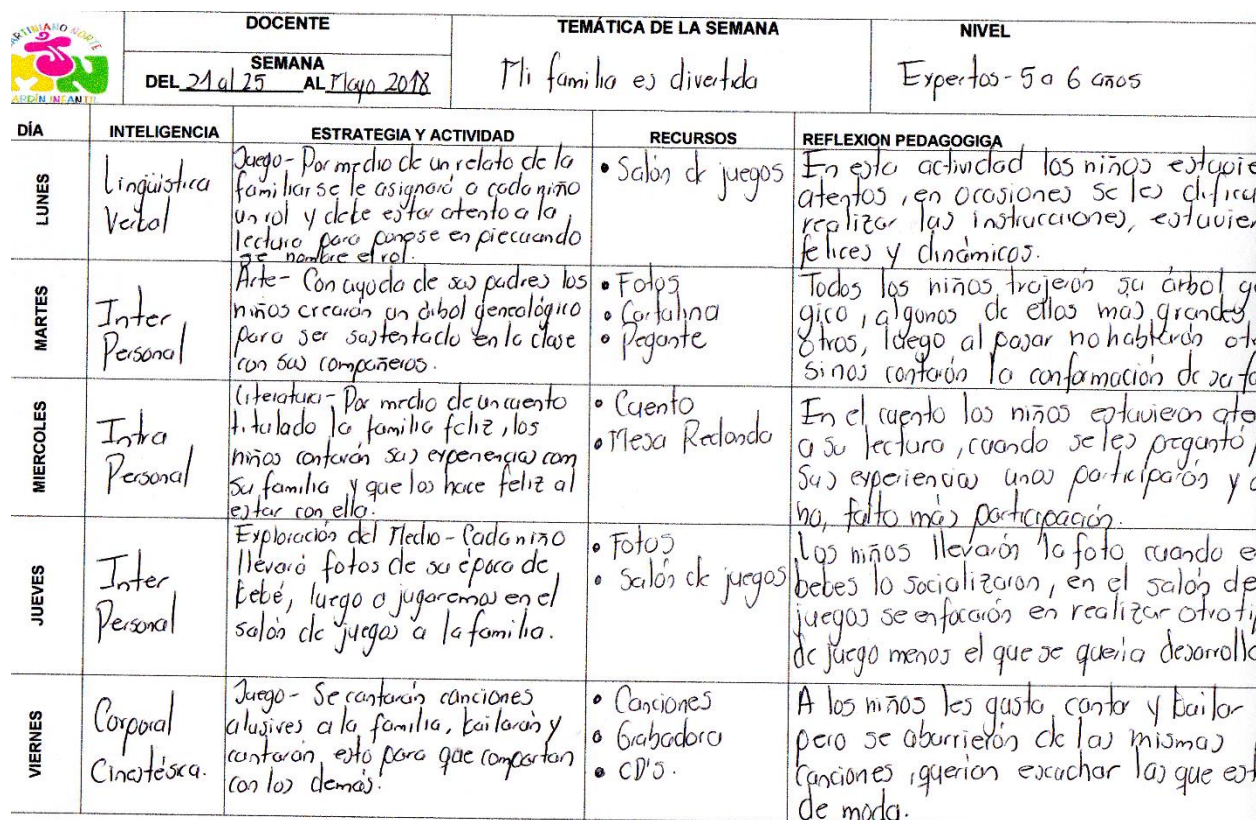 MARTINIANO NORTE
JARDÍN INFANTIL
DOCENTE
SEMANA
DEL 21 al 25 AL Mayo 2018
TEMÁTICA DE LA SEMANA
Mi familia es divertida
NIVEL
Expertos - 5 a 6 años
DÍA
INTELIGENCIA
ESTRATEGIA Y ACTIVIDAD
RECURSOS
REFLEXION PEDAGOGIGA
LUNES
Lingüistica
Verbal
Juego - Por medio de un relato de la
familiar se le asignará a cada niño
un rol y debe estar atento a la
lectura para ponese en pie cuando
se nombre el rol.
• Salón de juegos
En esta actividad los niños estuvie
atentos, en ocasiones se les dificu
realizar las instrucciones, estuvier
felices y dinámicos.
MARTES
Inter
Personal
Arte - Con ayuda de sus padres los
niños crearán un árbol genealógico
para ser sustentado en la clase
con sus compañeros.
• Fotos
• Cartulina
• Pegante
Todos los niños trajerón su árbol g
gico, algunos de ellos mas grandes
otros, luego al pasar no hablarón ot
si nos contarón la conformación de su fa
MIERCOLES
Intra
Personal
Literatura - Por medio de un cuento
titulado la familia feliz, los
niños contarán sus experiencias com
su familia y que los hace feliz al
estar con ella.
• Cuento
• Mesa Redonda
En el cuento los niños estuvieron ate
a su lectura, cuando se les preguntó
sus experiencias unos participarón y
no, falto más participación.
JUEVES
Inter
Personal
Exploración del Medio - Cada niño
llevará fotos de su época de
bebé, luego a jugaremos en el
salón de juegos a la familia.
• Fotos
• Salón de juegos
Los niños llevarón la foto cuando e
bebes lo socializaron, en el salón de
juegos se enfocarón en realizar otro ti
de juego menos el que se queria desarrolla
VIERNES
Corporal
Cinestésica.
Juego - Se cantarán canciones
alusives a la familia, bailarán y
cantarán, esto para que compartan
con los demás.
• Canciones
• Grabadora
• CD'S.
A los niños les gusta cantar y bailar
pero se aburrierón de las mismas
canciones, querian escuchar las que est
de moda.